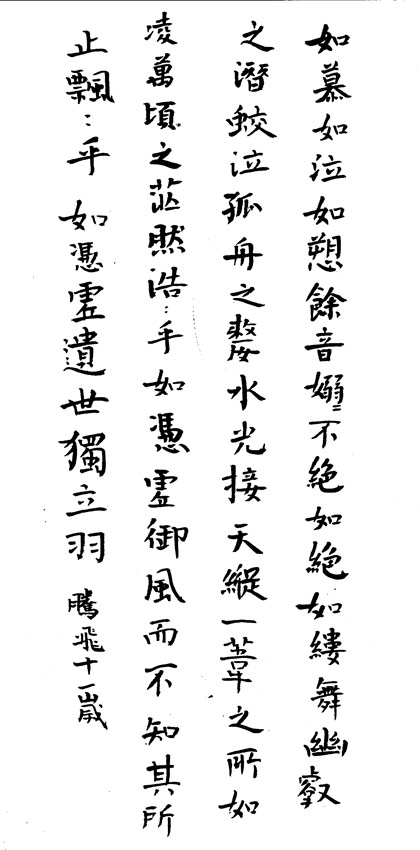 如慕如泣如愬餘音嫋〻不絶如絶如縷舞幽叡
之潛蛟泣孤舟之嫠水光接天縱一葦之所如
凌萬頃之茫然浩〻乎如憑虛御風而不知其所
止飄〻乎如憑虛遺世獨立羽 騰飛十一歲